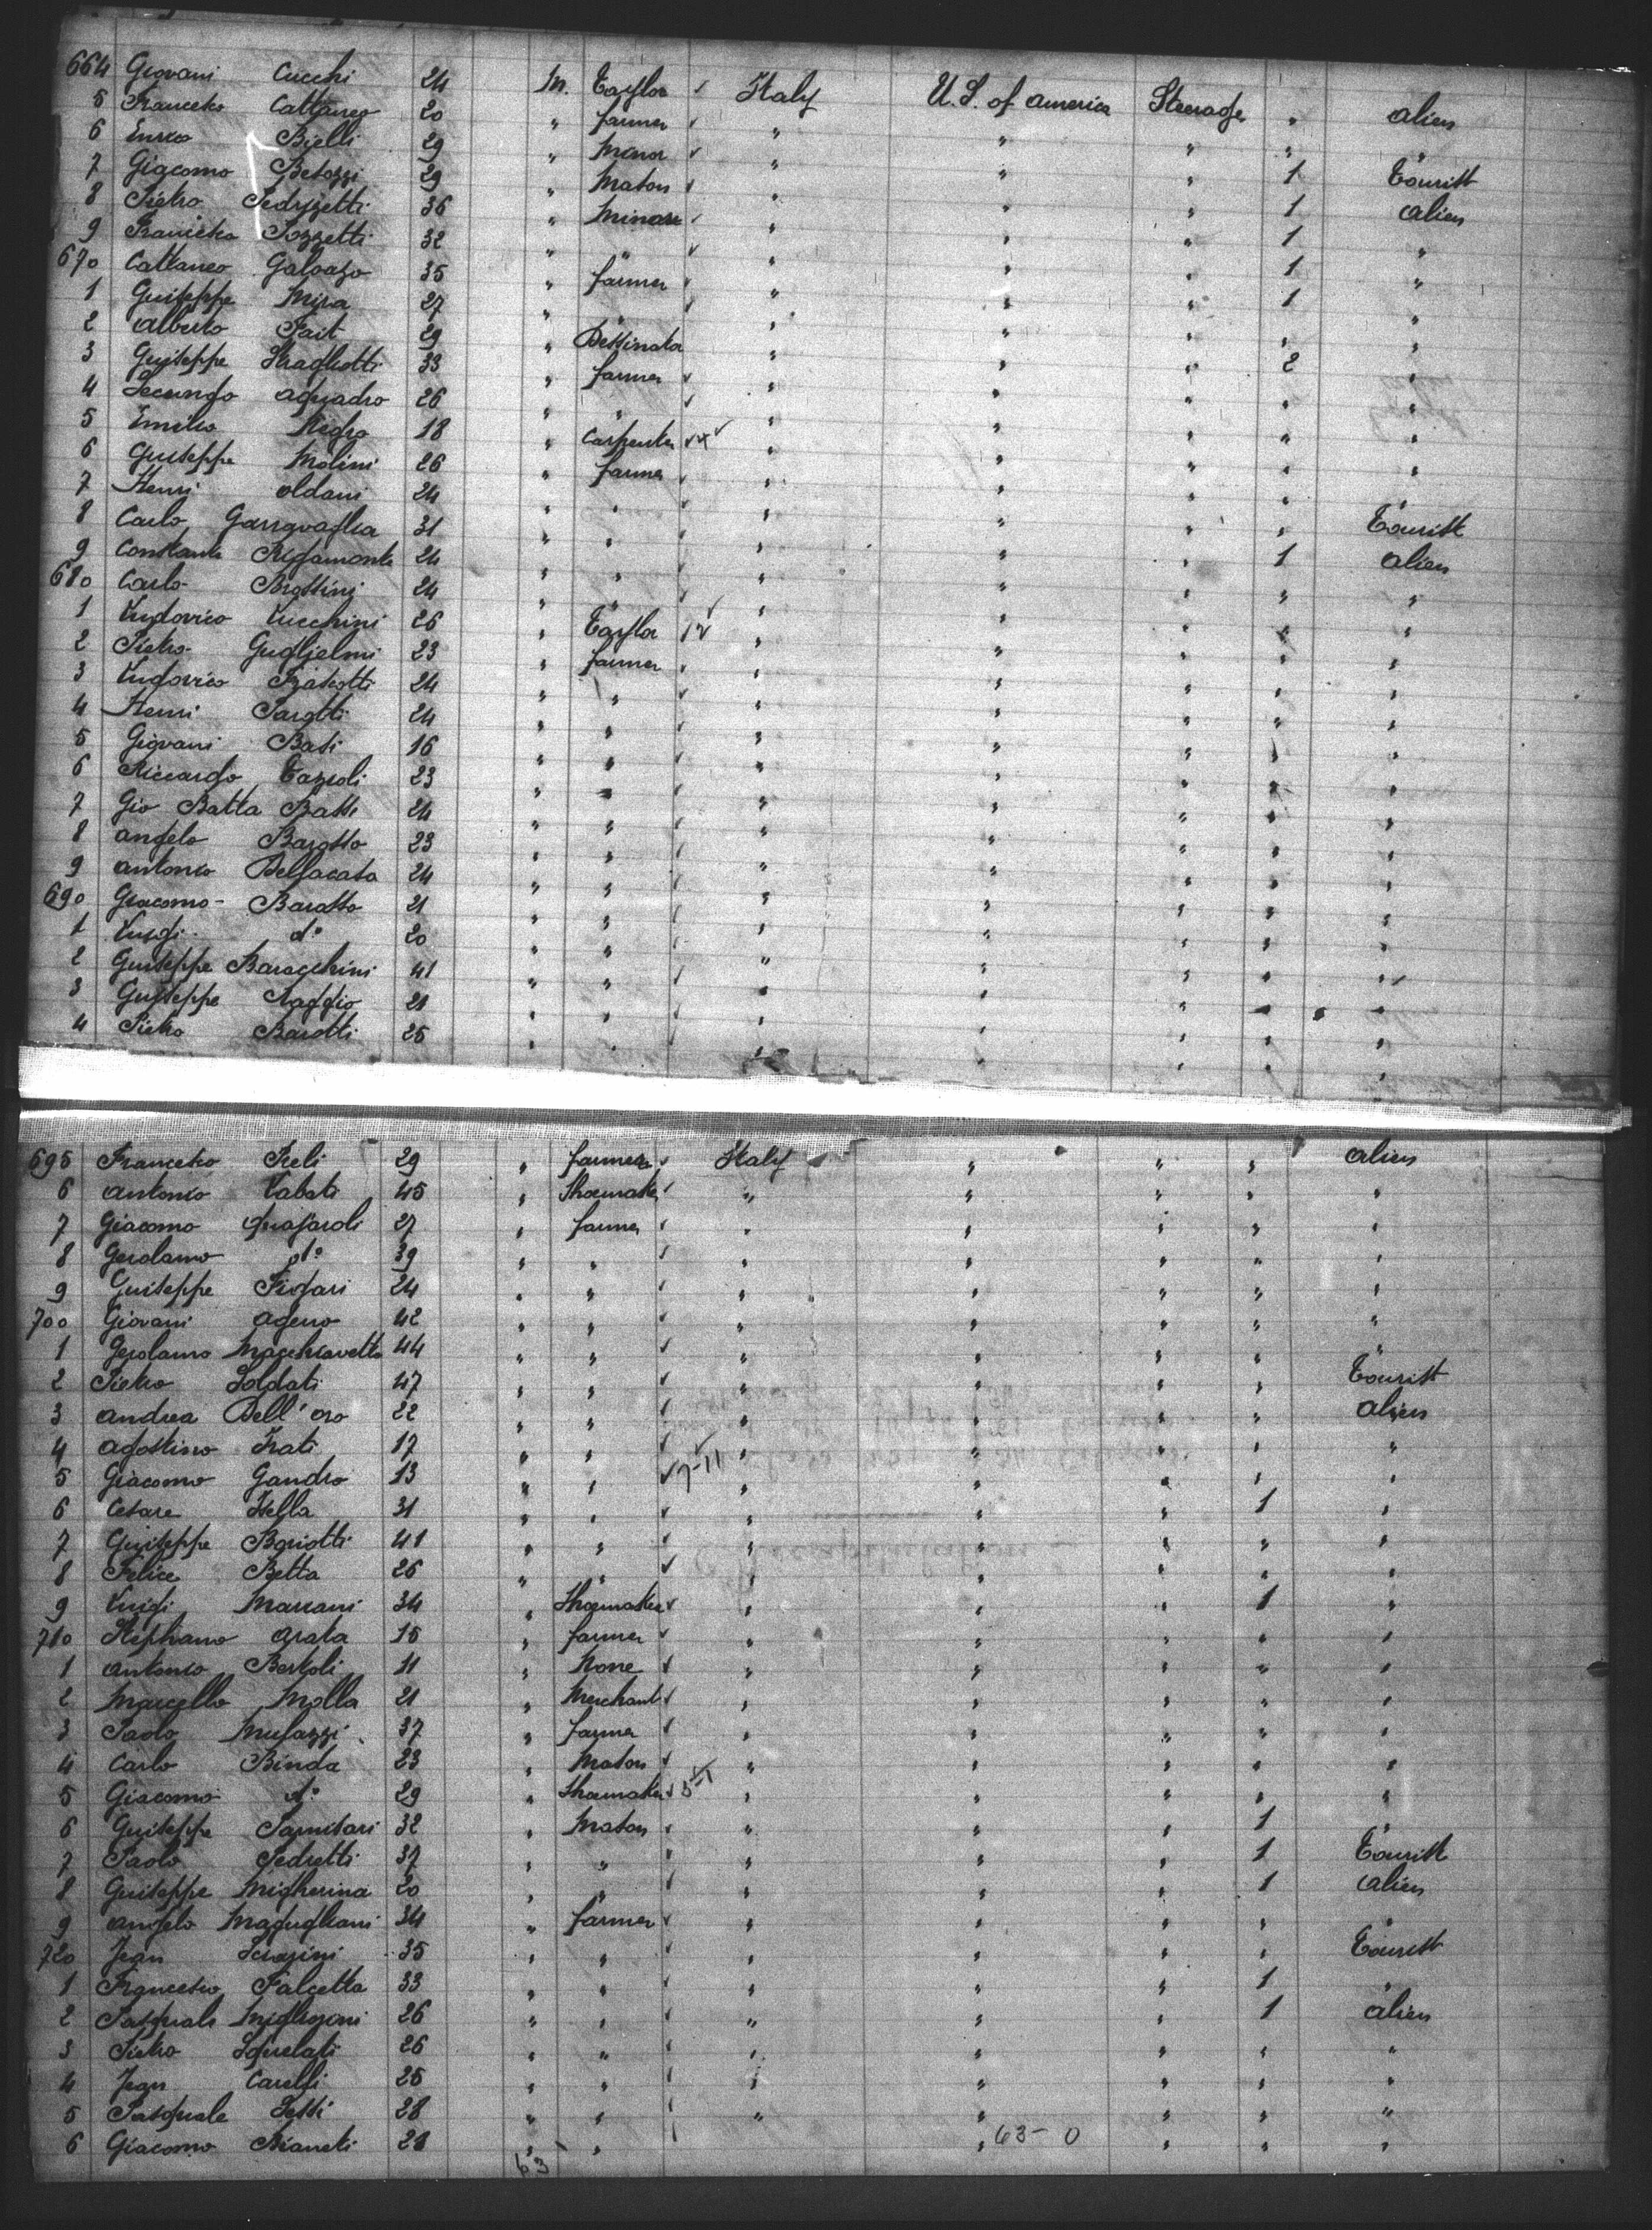 664 Giovani Cucchi 24 M. Taylor Italy U.S. of America Steerage " alien
5 Francesco Cattaneo 20 " farmer " " " " "
6 Enrico Bielli 29 " Minor " " " 1 Tourist
7 Giacomo Betozzi 29 " Mason " " " 1 alien
8 Pietro Pedrizetti 36 " Minore " " " 1 "
9 Francesco Pozzetti 32 " " " " " 1 "
670 Cattaneo Galoazo 35 " farmer " " " 1 "
1 Guiseppe Mira 27 " " " " " " "
2 Alberto Fait 29 " Dessinator " " " 2 "
3 Guiseppe Stragliotti 33 " farmer " " " " "
4 Secundo aquadro 26 " " " " " " "
5 Emilio Negro 18 " Carpenter " " " " "
6 Guiseppe Molini 26 " farmer " " " " "
7 Henri oldani 24 " " " " " " Tourist
8 Carlo Garavaglia 31 " " " " " 1 alien
9 Constante Rigamonte 24 " " " " " " "
680 Carlo Brossini 24 " " " " " " "
1 Ludovico Lucchini 26 " Taylor " " " " "
2 Pietro Guglielmi 23 " farmer " " " " "
3 Ludovico 24 " " " " " " "
4 Henri Parotti 24 " " " " " " "
5 Giovani Basi 16 " " " " " " "
6 Riccardo Tazzoli 23 " " " " " " "
7 Gio Batta Bassi 24 " " " " " " "
8 angelo Barotto 23 " " " " " " "
9 antonio Dellacasa 24 " " " " " " "
690 Giacomo Baratto 21 " " " " " " "
1 Luigi do 20 " " " " " " "
2 Guiseppe Baracchini 41 " " " " " " "
3 Guiseppe Raggio 21 " " " " " " "
4 Pietro Barotti 25 " " " " " " "
695 Francesco Preli 29 " farmer Italy " " " alien
6 antonio Labati 45 " Shoemaker " " " " "
7 Giacomo 27 " farmer " " " " "
8 Gerolamo do 39 " " " " " " "
9 Guiseppe Figari 24 " " " " " " "
700 Giovani ageno 42 " " " " " " "
1 Gerolamo Macchiavello 44 " " " " " " "
2 Pietro Soldati 47 " " " " " " Tourist
3 andrea Dell' oro 22 " " " " " " alien
4 agostino Frati 17 " " " " " " "
5 Giacomo Gandro 13 " " 7-11 " " " " "
6 Cesare Stella 31 " " " " " 1 "
7 Guiseppe Boriotti 41 " " " " " " "
8 Felice Betta 26 " " " " " " "
9 Luigi Marrani 34 " Shoemaker " " " 1 "
710 Stephano arata 15 " farmer " " " " "
1 antonio Bertoli 11 " None " " " " "
2 Marcello Molla 21 " Merchant " " " " "
3 Paolo Mulazzi 37 " farmer " " " " "
4 Carlo Binda 23 " Mason " " " " "
5 Giacomo do 29 " Shoemaker " " " " "
6 Guiseppe 32 " Mason " " " 1 "
7 Paolo Pedretti 37 " " " " " 1 Tourist
8 Guiseppe Migherina 20 " " " " " 1 alien
9 angelo Magugliani 34 " farmer " " " " "
720 Jean 35 " " " " " " Tourist
1 Francesco Falcetta 33 " " " " " 1 "
2 Pasquale Migliozoni 26 " " " " " 1 alien
3 Pietro Squelati 26 " " " " " " "
4 Jean Carelli 25 " " " " " " "
5 Pasquale Sessi 28 " " " " " " "
6 Giacomo Bianchi 28 " " " 63-0 " " "
63